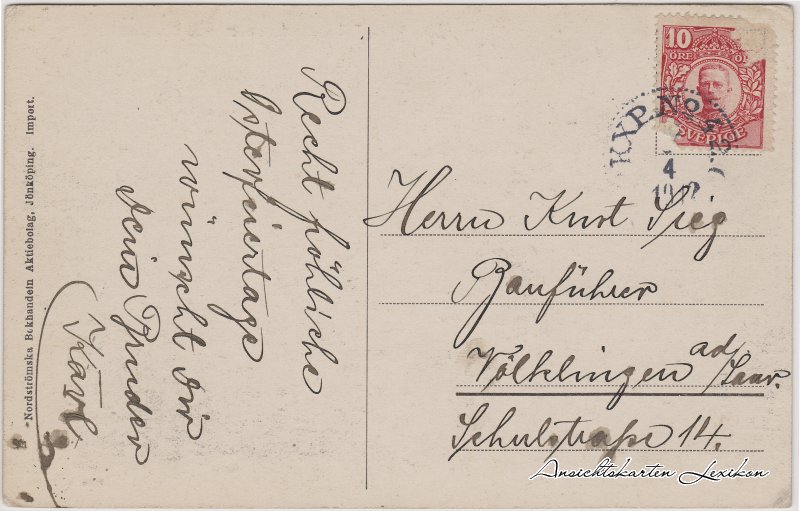 Recht fröhliche
Osterfeiertage
wünscht Dir
dein Bruder
Karl
Herrn Kurt Sieg
Bauführer
Völklingen ad/Saar.
Schulstraße 14.
10
ÖRE
SVERIGE
PKXP. No
4
Nordströmska Bokhandeln Aktiebolag, Jönköping. Import.
Ansichtskarten Lexikon